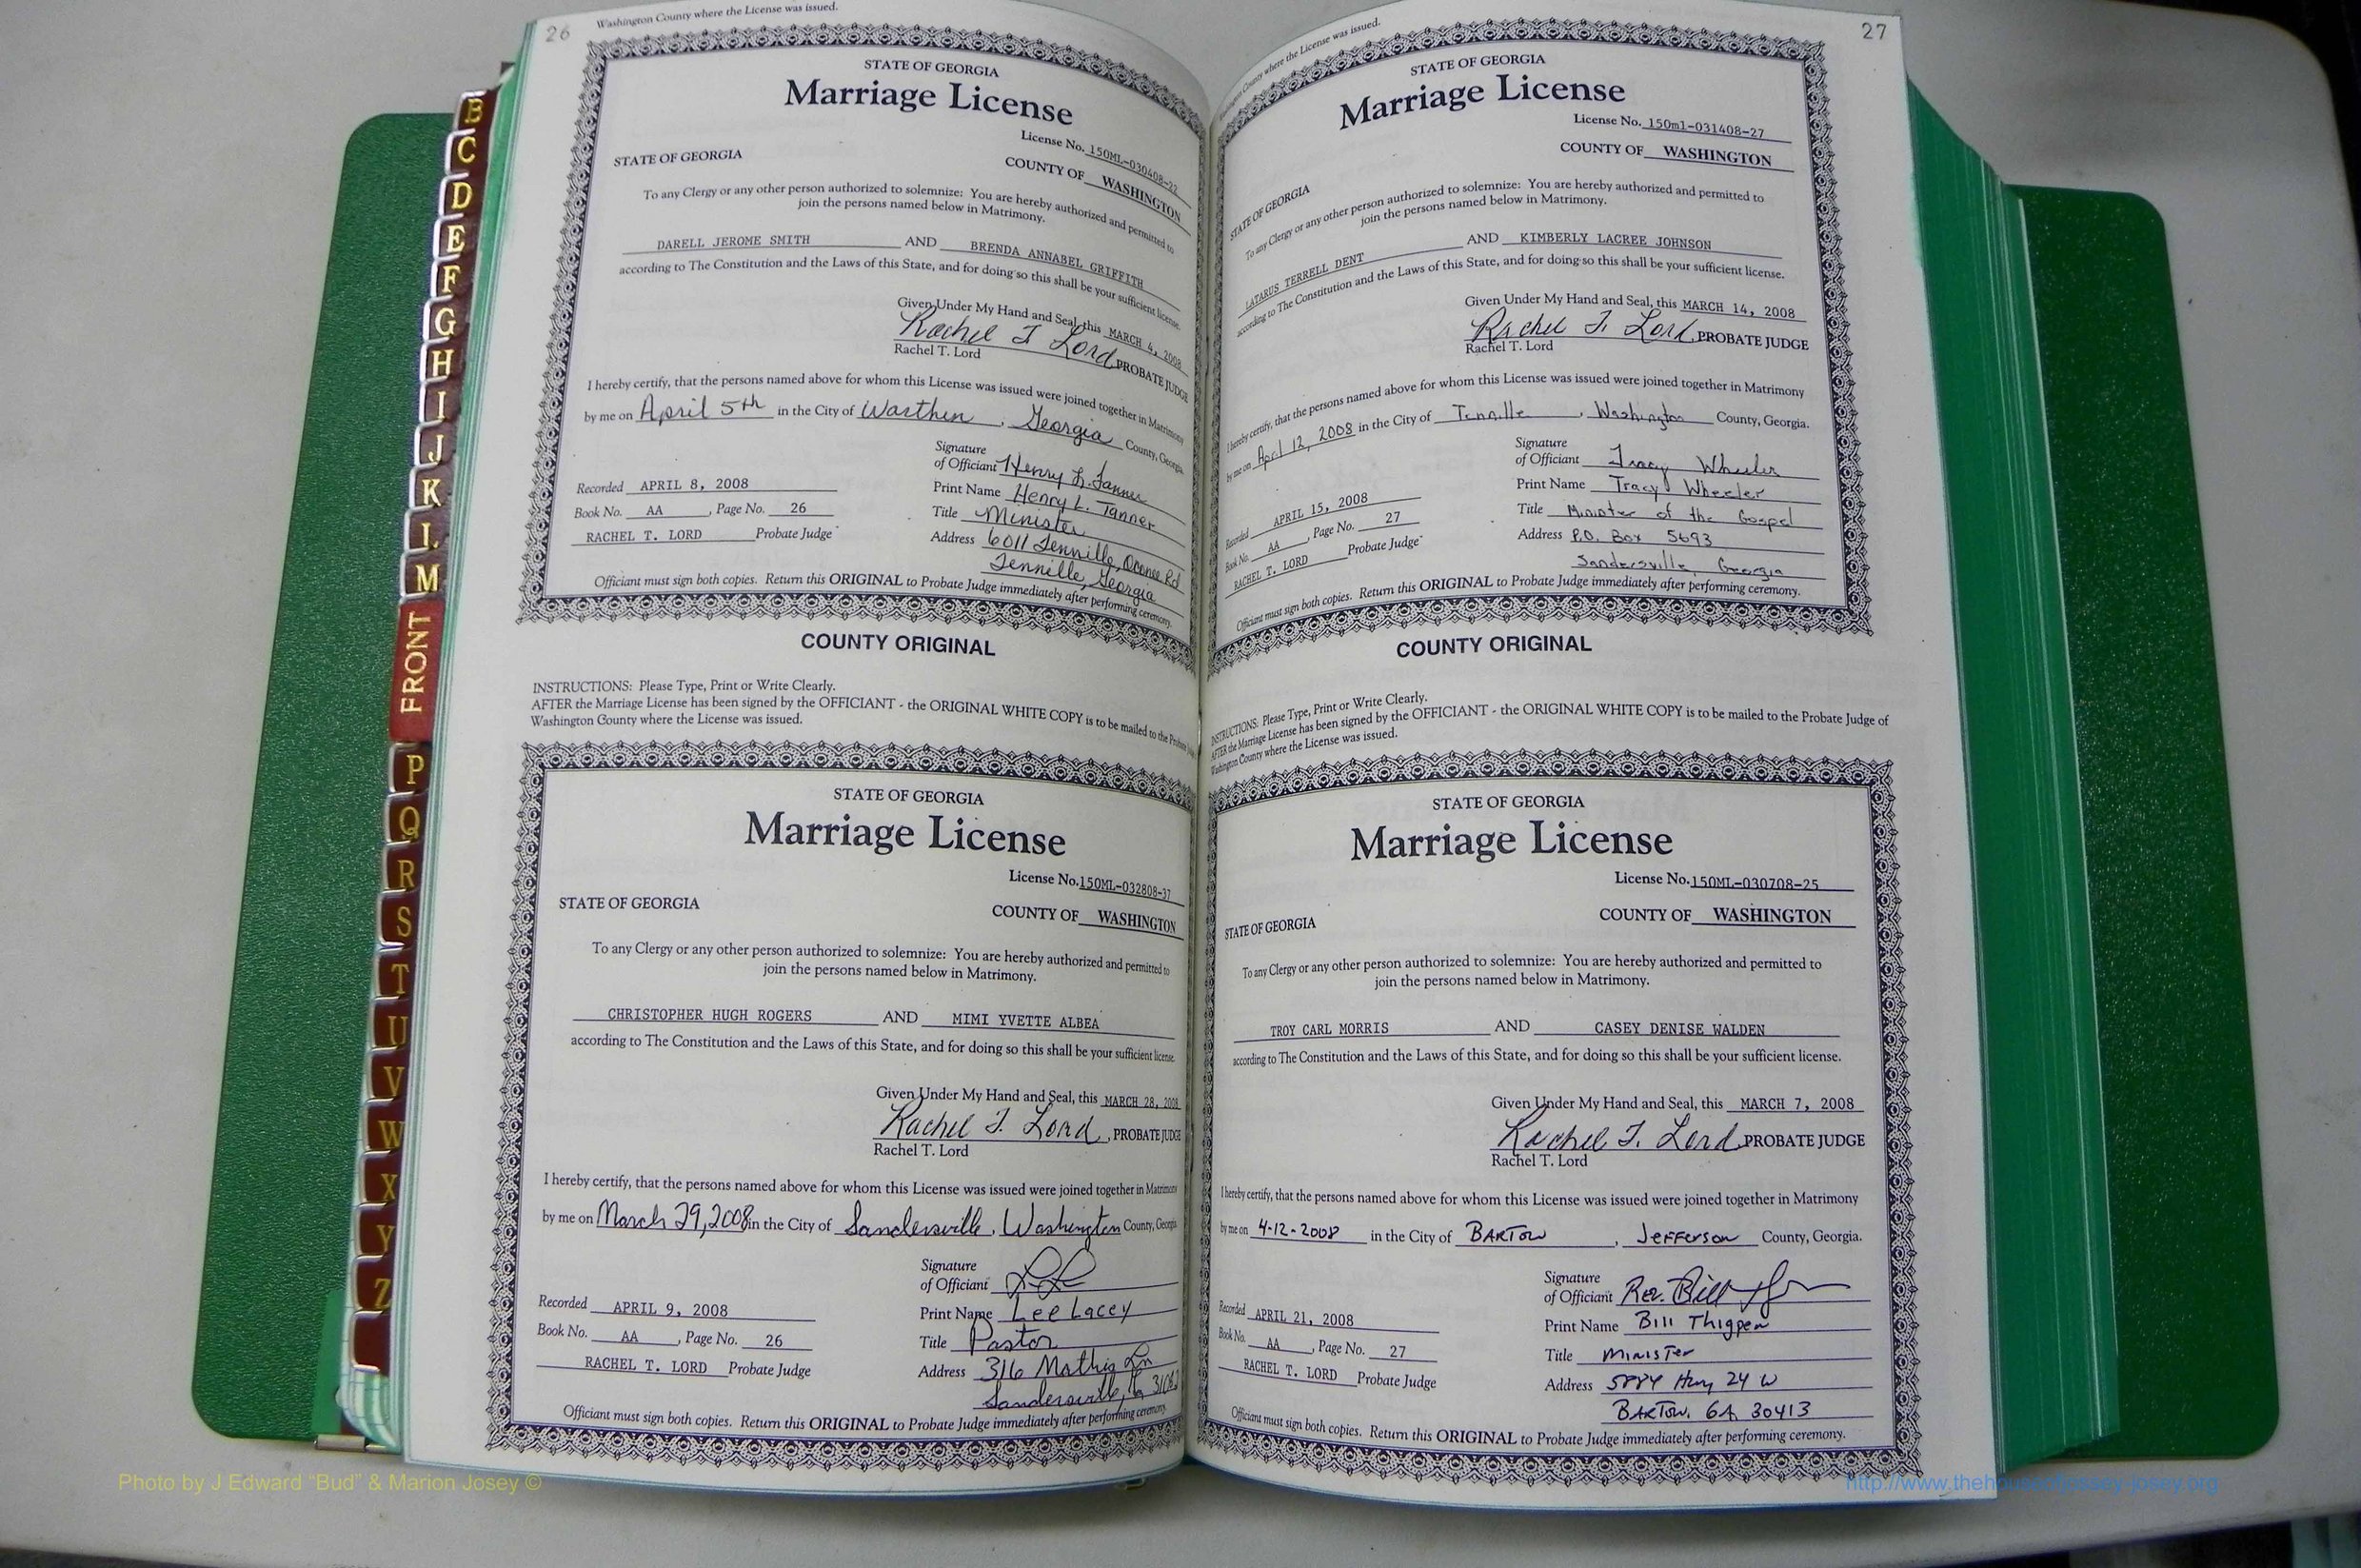 26
Washington County where the License was issued.
STATE OF GEORGIA
Marriage License
License No. 150ML-030408-22
STATE OF GEORGIA
COUNTY OF WASHINGTON
To any Clergy or any other person authorized to solemnize: You are hereby authorized and permitted to
join the persons named below in Matrimony.
DARELL JEROME SMITH AND BRENDA ANNABEL GRIFFITH
according to The Constitution and the Laws of this State, and for doing so this shall be your sufficient license.
Given Under My Hand and Seal, this MARCH 4, 2008
Rachel T. Lord PROBATE JUDGE
Rachel T. Lord
I hereby certify, that the persons named above for whom this License was issued were joined together in Matrimony
by me on April 5th in the City of Warthen, Georgia County, Georgia.
Signature
of Officiant Henry L. Tanner
Recorded APRIL 8, 2008
Print Name Henry L. Tanner
Book No. AA, Page No. 26
Title Minister
RACHEL T. LORD Probate Judge
Address 6011 Tennille, Oconee Rd
Tennille, Georgia
Officiant must sign both copies. Return this ORIGINAL to Probate Judge immediately after performing ceremony.
COUNTY ORIGINAL
INSTRUCTIONS: Please Type, Print or Write Clearly.
AFTER the Marriage License has been signed by the OFFICIANT - the ORIGINAL WHITE COPY is to be mailed to the
Washington County where the License was issued.
STATE OF GEORGIA
Marriage License
License No. 150ML-032808-37
STATE OF GEORGIA
COUNTY OF WASHINGTON
To any Clergy or any other person authorized to solemnize: You are hereby authorized and permitted to
join the persons named below in Matrimony.
CHRISTOPHER HUGH ROGERS AND MIMI YVETTE ALBEA
according to The Constitution and the Laws of this State, and for doing so this shall be your sufficient license.
Given Under My Hand and Seal, this MARCH 28, 2008
Rachel T. Lord, PROBATE JUDGE
Rachel T. Lord
I hereby certify, that the persons named above for whom this License was issued were joined together in Matrimony
by me on March 29, 2008 in the City of Sandersville, Washington County, Georgia
Signature
of Officiant
Recorded APRIL 9, 2008
Print Name Lee Lacey
Book No. AA, Page No. 26
Title Pastor
RACHEL T. LORD Probate Judge
Address 316 Mathis Ln
Sandersville, Ga
Officiant must sign both copies. Return this ORIGINAL to Probate Judge immediately after performing ceremony.
27
Washington County where the License was issued.
STATE OF GEORGIA
Marriage License
License No. 150m1-031408-27
COUNTY OF WASHINGTON
STATE OF GEORGIA
To any Clergy or any other person authorized to solemnize: You are hereby authorized and permitted to
join the persons named below in Matrimony.
LATARUS TERRELL DENT AND KIMBERLY LACREE JOHNSON
according to The Constitution and the Laws of this State, and for doing so this shall be your sufficient license.
Given Under My Hand and Seal, this MARCH 14, 2008
Rachel T. Lord, PROBATE JUDGE
Rachel T. Lord
I hereby certify, that the persons named above for whom this License was issued were joined together in Matrimony
by me on April 12, 2008 in the City of Tennille, Washington County, Georgia.
Signature
of Officiant Tracy Wheeler
Print Name Tracy Wheeler
Recorded APRIL 15, 2008
Title Minister of the Gospel
Book No. AA, Page No. 27
Address P.O. Box 5693
RACHEL T. LORD Probate Judge
Sandersville, Georgia
Officiant must sign both copies. Return this ORIGINAL to Probate Judge immediately after performing ceremony.
COUNTY ORIGINAL
INSTRUCTIONS: Please Type, Print or Write Clearly.
AFTER the Marriage License has been signed by the OFFICIANT - the ORIGINAL WHITE COPY is to be mailed to the Probate Judge of
Washington County where the License was issued.
STATE OF GEORGIA
Marriage License
License No. 150ML-030708-25
COUNTY OF WASHINGTON
STATE OF GEORGIA
To any Clergy or any other person authorized to solemnize: You are hereby authorized and permitted to
join the persons named below in Matrimony.
TROY CARL MORRIS AND CASEY DENISE WALDEN
according to The Constitution and the Laws of this State, and for doing so this shall be your sufficient license.
Given Under My Hand and Seal, this MARCH 7, 2008
Rachel T. Lord, PROBATE JUDGE
Rachel T. Lord
I hereby certify, that the persons named above for whom this License was issued were joined together in Matrimony
by me on 4-12-2008 in the City of BARTOW, JEFFERSON County, Georgia.
Signature
of Officiant Rev. Bill
Print Name Bill Thigpen
Recorded APRIL 21, 2008
Title MINISTER
Book No. AA, Page No. 27
Address Hwy 24 W
RACHEL T. LORD Probate Judge
BARTOW, GA 30413
Officiant must sign both copies. Return this ORIGINAL to Probate Judge immediately after performing ceremony.
B
C
D
E
F
G
H
I
J
K
L
M
FRONT
P
Q
R
S
T
U
V
W
X
Y
Z
Photo by J Edward “Bud” & Marion Josey ©
http://www.thehouseofjossey-josey.org